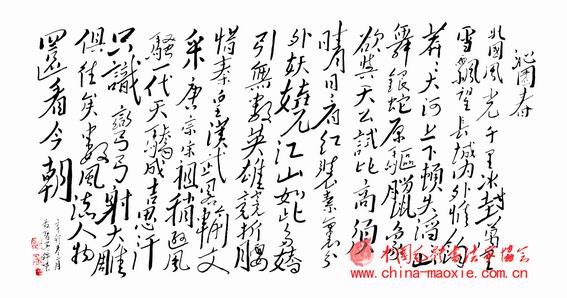 沁園春
北國風光千里冰封萬里
雪飄望長城内外惟餘
莽莽大河上下頓失滔滔山
舞銀蛇原驅臘象
欲與天公試比高須
晴日看紅裝素裹分
外妖嬈江山如此多嬌
引無數英雄競折腰
惜秦皇漢武略輸文
采唐宗宋祖稍遜風
騷一代天驕成吉思汗
只識彎弓射大雕
俱往矣數風流人物
還看今朝
中国毛體書法家協會
www.china-maoxie.com.cn